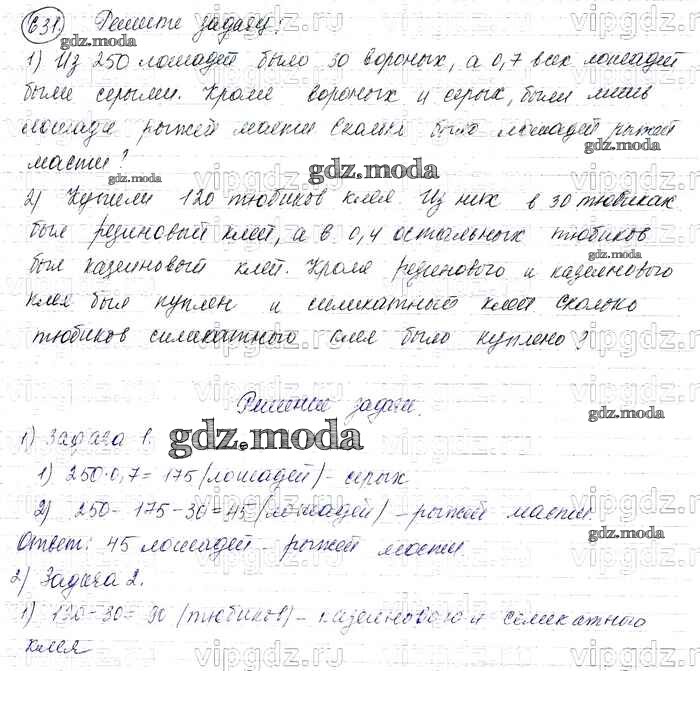 631. Решите задачу:
1) Из 250 лошадей было 30 вороных, а 0,7 всех лошадей
были серыми. Кроме вороных и серых, были лишь
лошади рыжей масти Сколько было лошадей рыжей
масти?
2) Купили 120 тюбиков клея Из них в 30 тюбиках
был резиновый клей, а в 0,4 остальных тюбиков
был казеиновый клей. Кроме резинового и казеинового
клея был куплен и силикатный клей Сколько
тюбиков силикатного клея было куплено?
Решение задач.
1) Задача 1.
1) 250·0,7=175 (лошадей) - серых
2) 250-175-30=45 (лошадей) - рыжей масти.
Ответ: 45 лошадей - рыжей масти.
2) Задача 2.
1) 120-30=90 (тюбиков) - казеинового и силикатного
клея
gdz.moda
gdz.moda
gdz.moda
gdz.moda
gdz.moda
gdz.moda
gdz.moda
vipgdz.ru